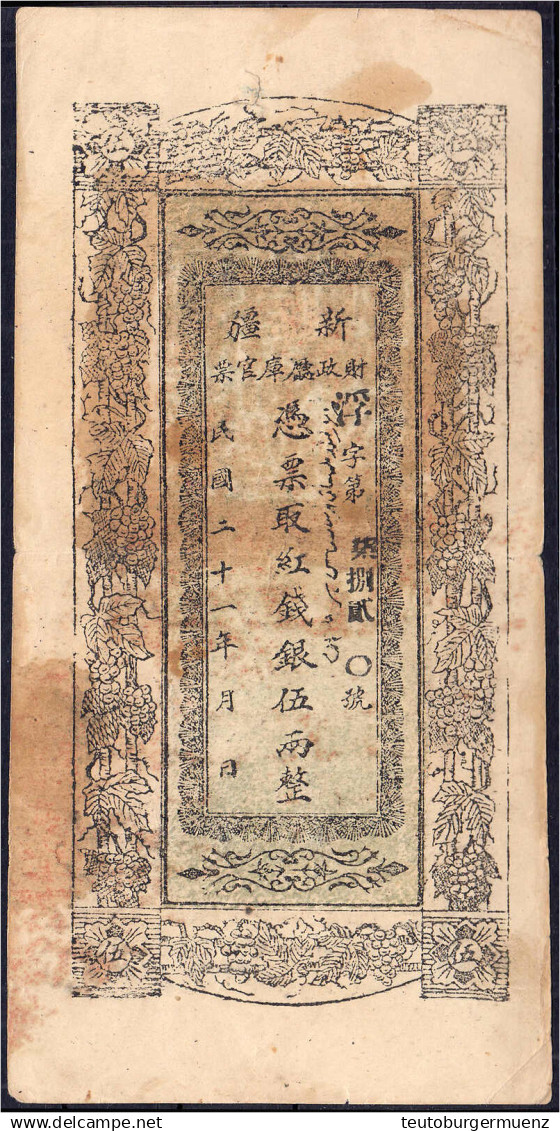 新疆
財政廳庫官票
浮字第柒捌貳〇號
憑票取紅錢銀伍兩整
民國二十一年 月 日
伍
伍
delcampe.net
teutoburgermuenz